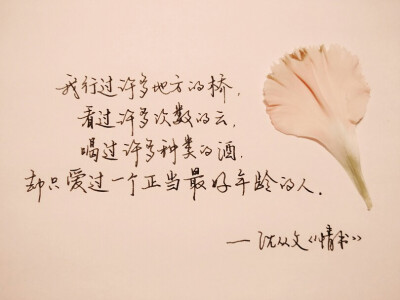 我行过许多地方的桥,
看过许多次数的云,
喝过许多种类的酒.
却只爱过一个正当最好年龄的人.
—沈从文《情书》